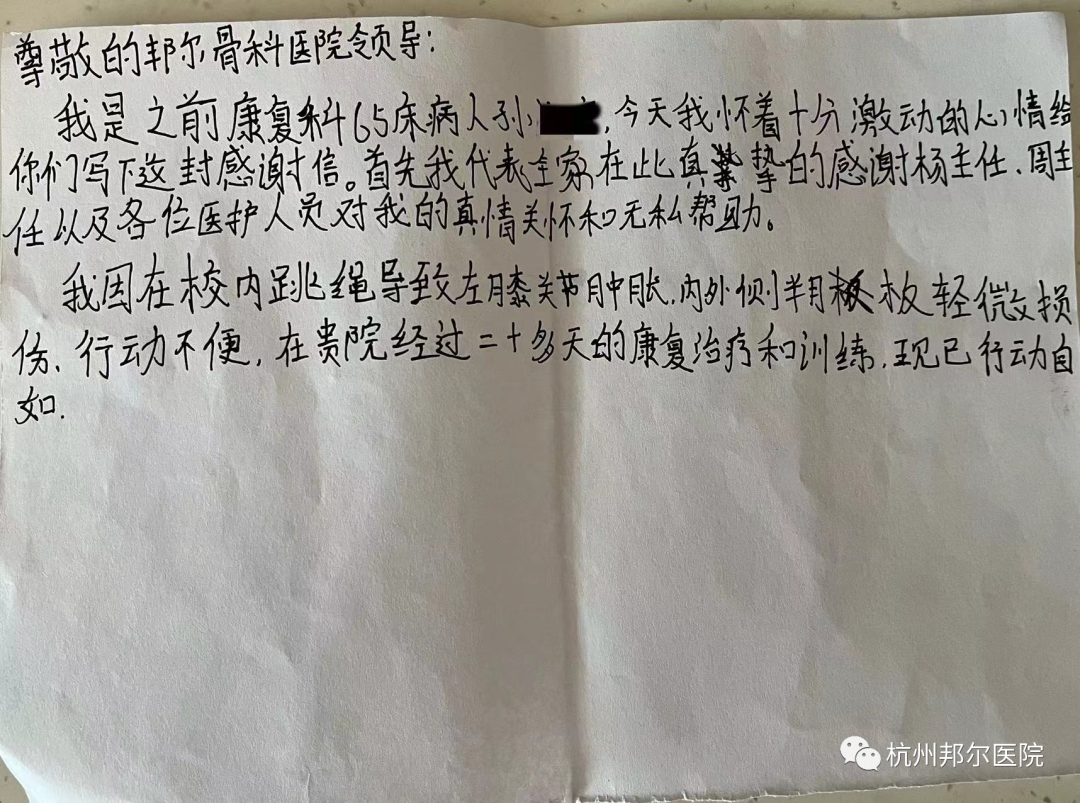 尊敬的邦尔骨科医院领导：
我是之前康复科65床病人孙，今天我怀着十分激动的心情给
你们写下这封感谢信。首先我代表全家在此真挚的感谢杨主任、周主
任以及各位医护人员对我的真情关怀和无私帮助。
我因在校内跳绳导致左膝关节肿胀，内外侧半月板轻微损
伤、行动不便，在贵院经过二十多天的康复治疗和训练，现已行动自
如．
杭州邦尔医院